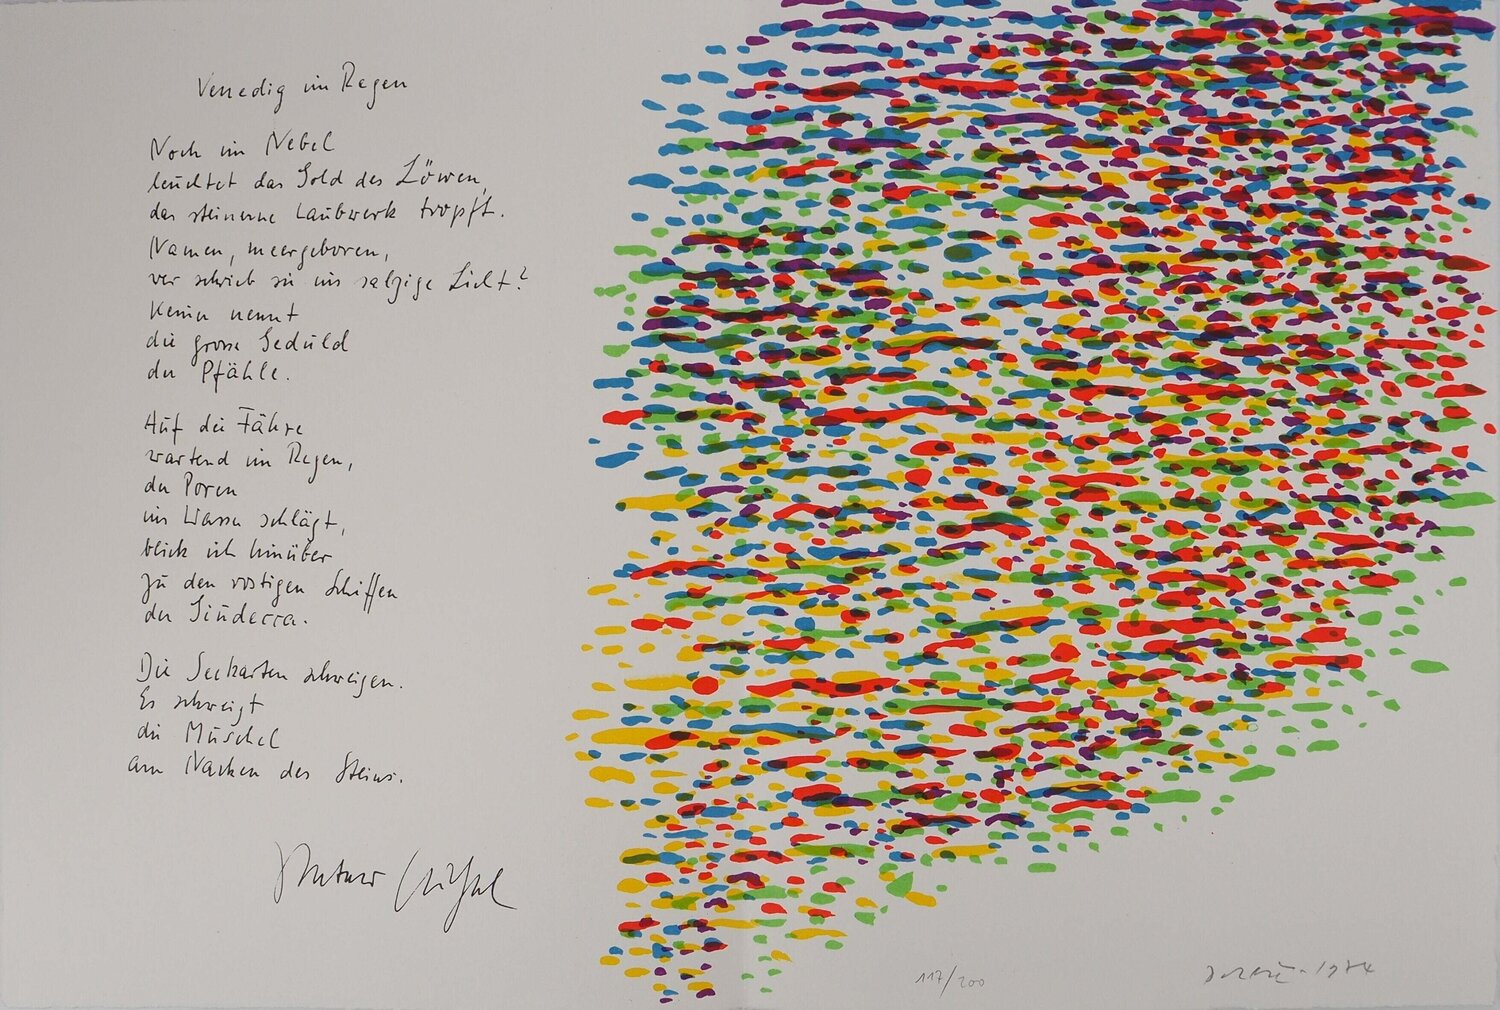 Venedig im Regen
Noch im Nebel
leuchtet das Gold des Löwen,
das steinerne Laubwerk tropft.
Namen, meergeboren,
wer schrieb sie ins salzige Licht?
Keiner nennt
die grosse Geduld
der Pfähle.
Auf die Fähre
wartend im Regen,
der Poren
ins Wasser schlägt,
blick ich hinüber
zu den rostigen Schiffen
der Giudecca.
Die Seekarten schweigen.
Es schweigt
die Muschel
am Nacken des Steins.
117/200
1974